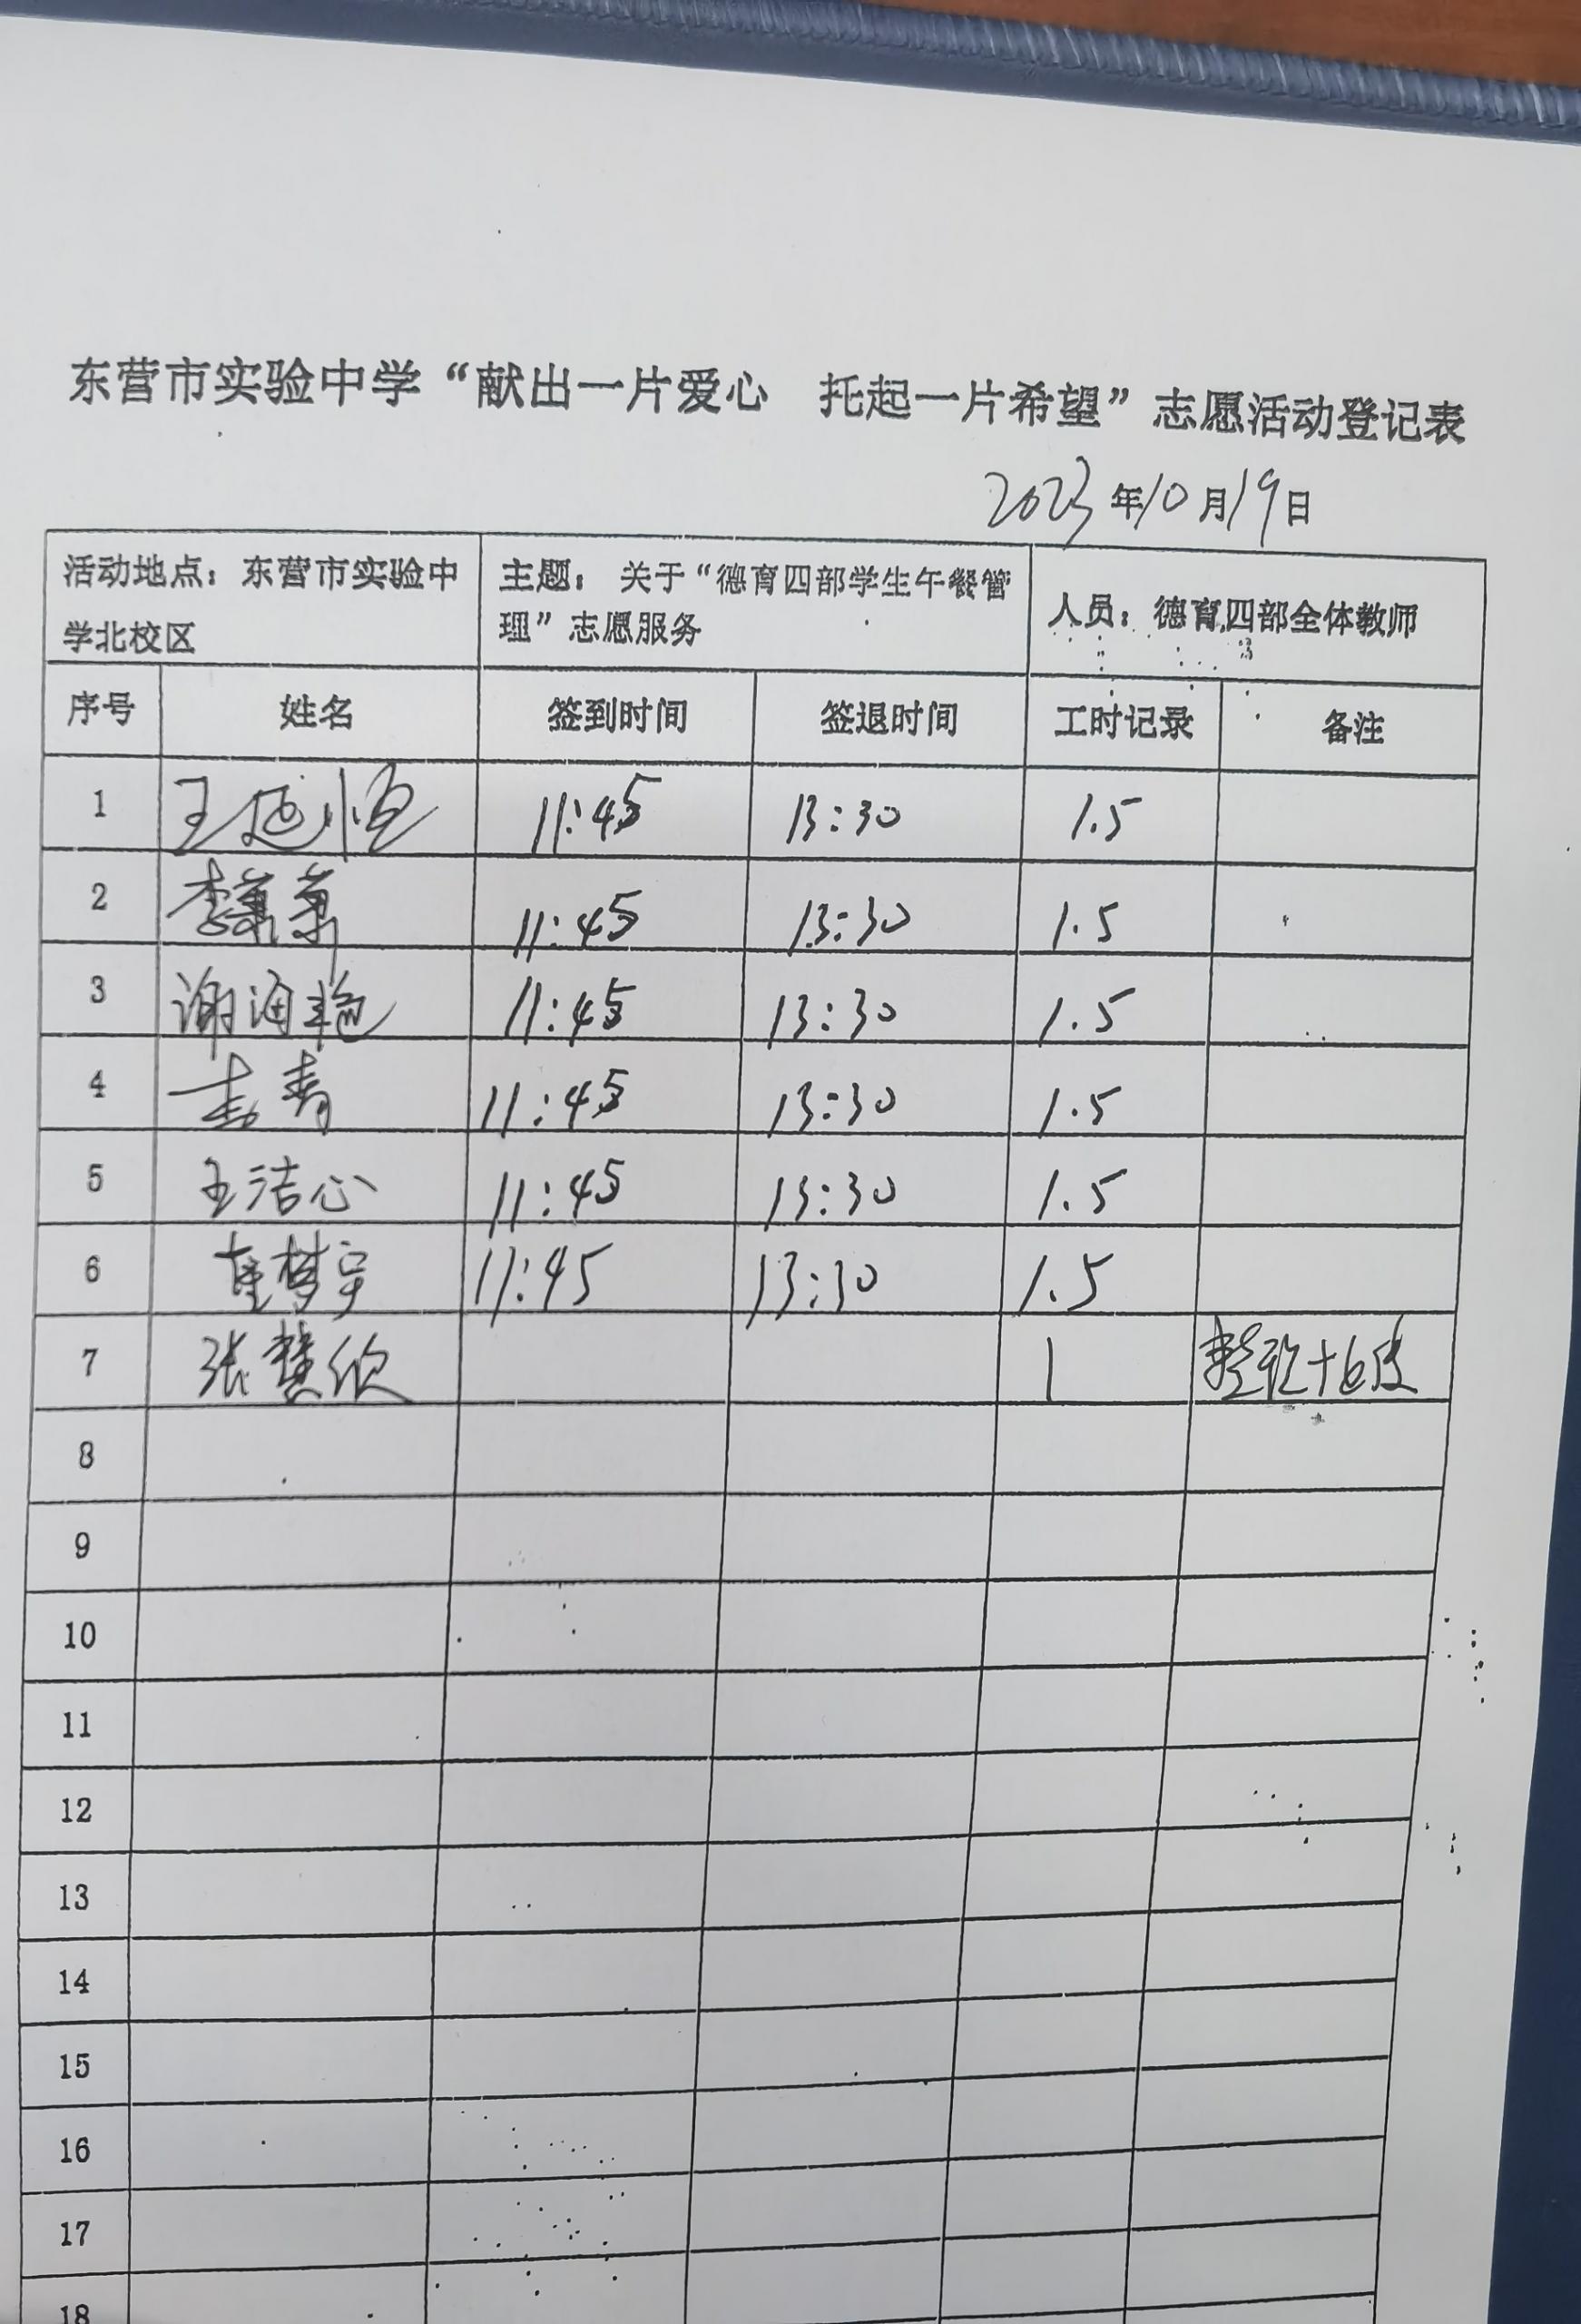 东营市实验中学“献出一片爱心 托起一片希望”志愿活动登记表
2023年10月19日
活动地点：东营市实验中
学北校区
主题： 关于“德育四部学生午餐管
理”志愿服务
人员：德育四部全体教师
序号 姓名 签到时间 签退时间 工时记录 备注
1 王延恒 11:45 13:30 1.5
2 李萧萧 11:45 13:30 1.5
3 谢海艳 11:45 13:30 1.5
4 11:45 13:30 1.5
5 王洁心 11:45 13:30 1.5
6 11:45 13:30 1.5
7 张慧欣 1
8
9
10
11
12
13
14
15
16
17
18